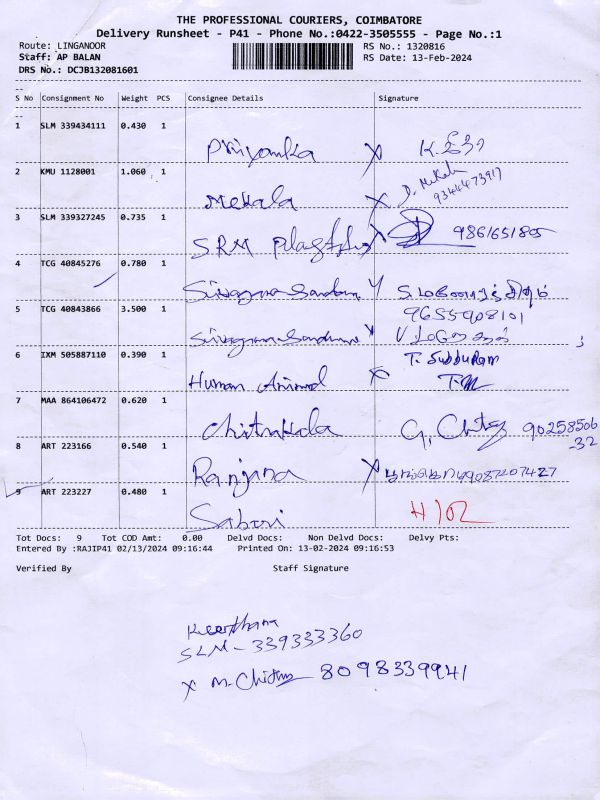 THE PROFESSIONAL COURIERS, COIMBATORE
Delivery Runsheet - P41 - Phone No.:0422-3505555 - Page No.:1
Route: LINGANOOR RS No.: 1320816
Staff: AP BALAN RS Date: 13-Feb-2024
DRS No.: DCJB132081601
S No Consignment No Weight PCS Consignee Details Signature
1 SLM 339434111 0.430 1
Priyanka X K.
2 KMU 1128001 1.060 1
Mekala X D. Mekala
9344473917
3 SLM 339327245 0.735 1
SRM X 9861651805
4 TCG 40845276 0.780 1
5 TCG 40843866 3.500 1
9655908101
6 IXM 505887110 0.390 1
T. Subburam
Human Animal X
7 MAA 864106472 0.620 1
Chitrakala G. 90258506
-32
8 ART 223166 0.540 1
Ranjana X 9087207427
9 ART 223227 0.480 1
Sabari H/O2
Tot Docs: 9 Tot COD Amt: 0.00 Delvd Docs: Non Delvd Docs: Delvy Pts:
Entered By :RAJIP41 02/13/2024 09:16:44 Printed On: 13-02-2024 09:16:53
Verified By Staff Signature
Keerthana
SLM - 339333360
X M. 8098339941